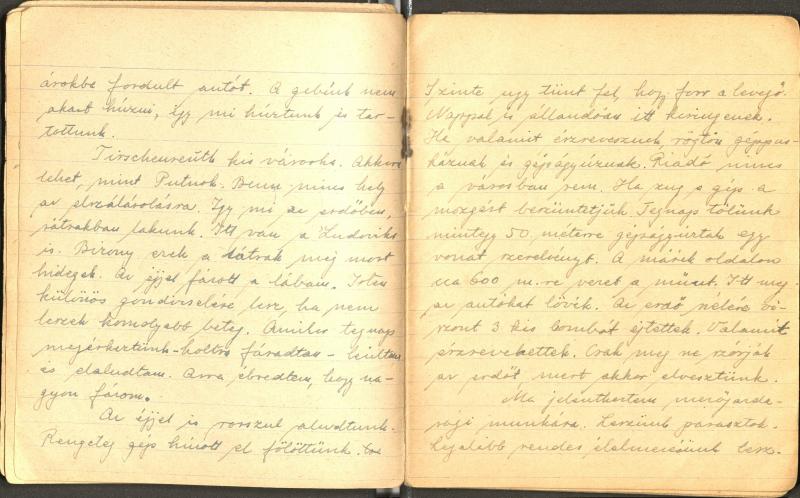 árokba fordult autót. A gebénk nem
akart húzni, így mi húztunk is tar-
tottunk.
Tirschenreuth kis városka. Akkora
lehet, mint Putnok. Benn nincs hely
az elszálásolásra. Így mi az erdőben,
sátrakban lakunk. Itt van a Ludovika
is. Bizony ezek a sátrak még most
hidegek. Az éjjel fázott a lábam. Isten
különös gondviselése lesz, ha nem
leszek komolyabb beteg. Amikor tegnap
megérkeztünk - holtra fáradtan - leültem
és elaludtam. Arra ébredtem, hogy na-
gyon fázom.
Az éjjel is rosszul aludtunk.
Rengeteg gép húzott el fölöttünk.
Szinte ugy tünt fel, hogy forr a levegő.
Nappal is állandóan itt keringenek.
Ha valamit észrevesznek, rögtön géppus-
káznak és gépágyúznak. Riadó nincs
a városban sem. Ha zug a gép a
mozgást beszüntetjük. Tegnap tőlünk
mintegy 50 méterre gépágyúztak egy
vonat szerelvényt. A másik oldalon
cca 600 m.-re vezet a műut. Itt meg
az autókat lövik. Az erdő szélére vi-
szont 3 kis bombát ejtettek. Valamit
észrevehettek. Csak meg ne szórják
az erdőt, mert akkor elvesztünk.
Ma jelentkeztem mezőgazda-
sági munkára. Leszünk parasztok.
Legalább rendes élelmezésünk lesz.